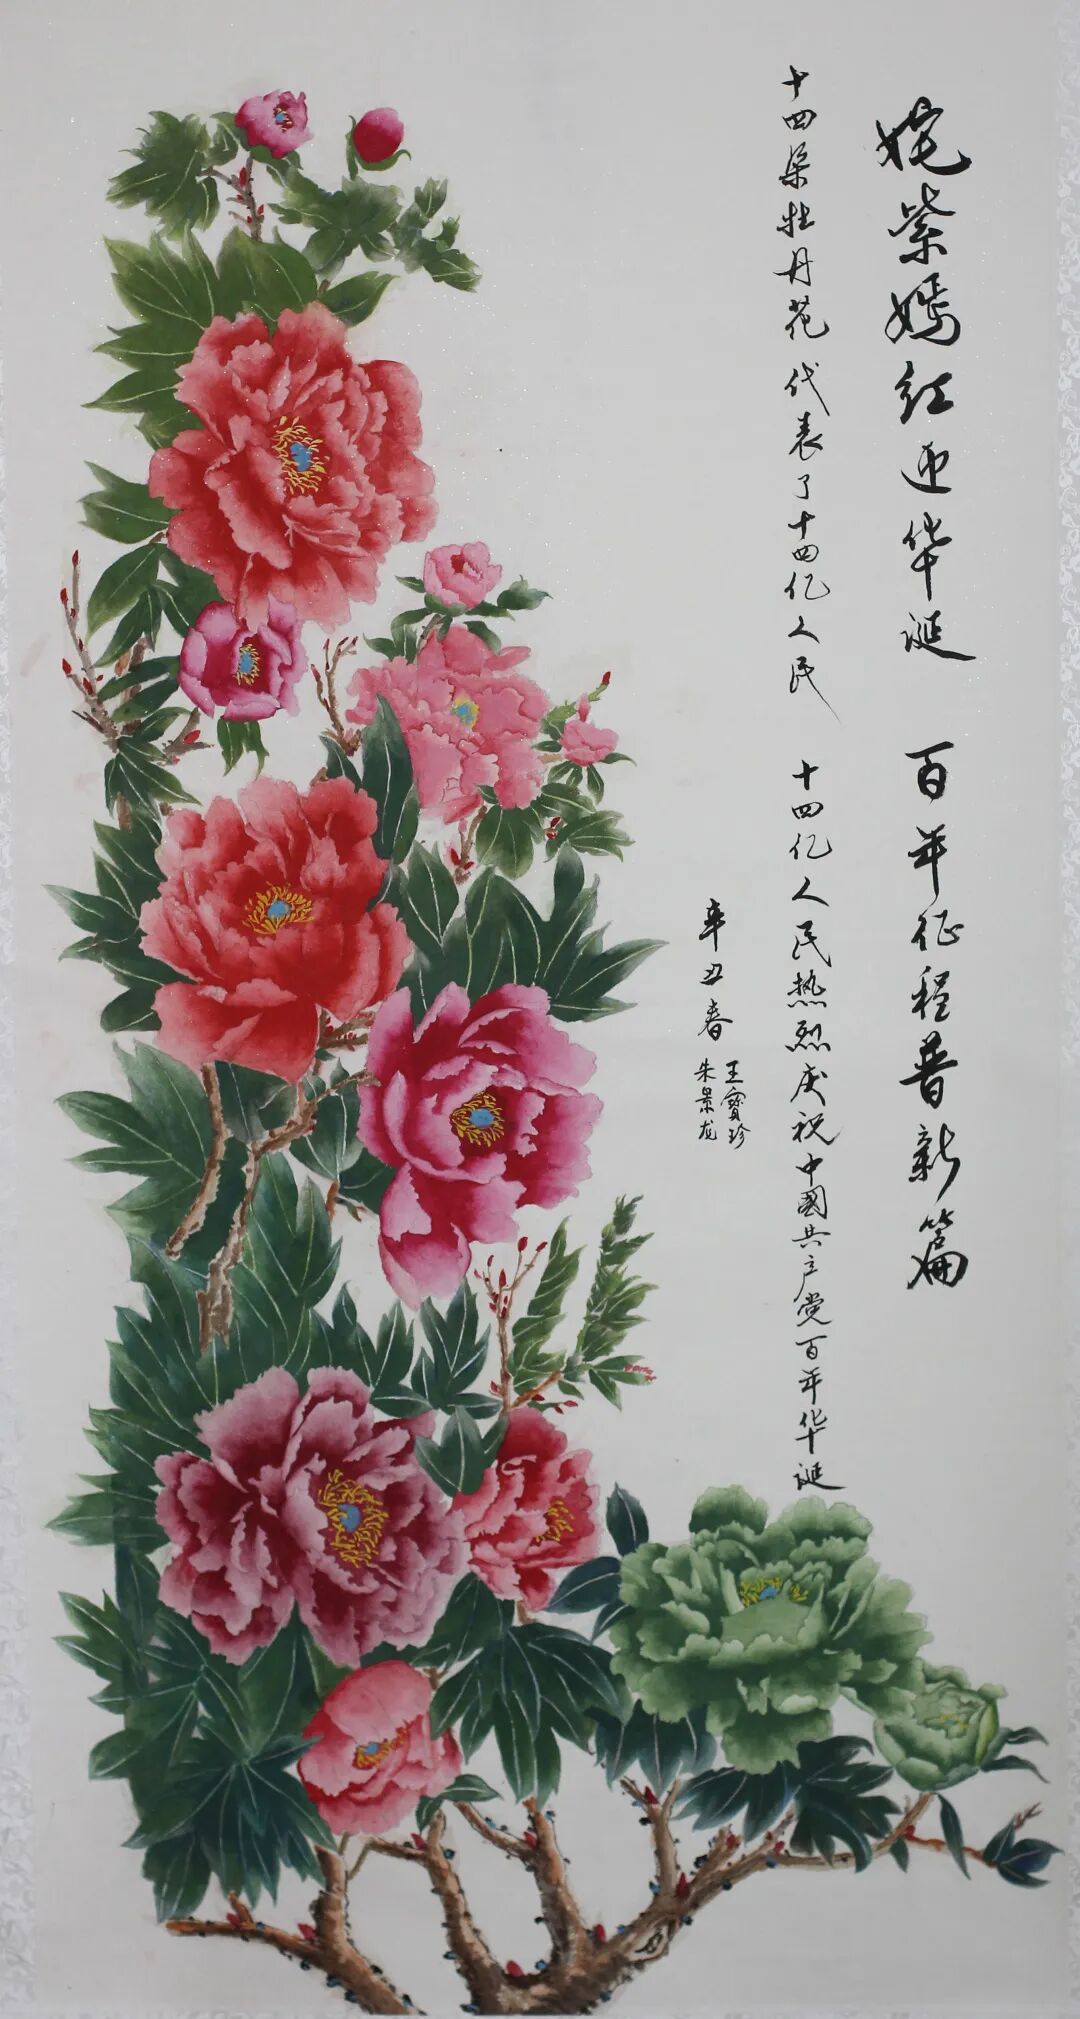 姹紫嫣红迎华诞 百年征程普新篇
十四朵牡丹花代表了十四亿人民 十四亿人民热烈庆祝中國共产党百年华诞
辛丑春
王寳珍
朱景龙